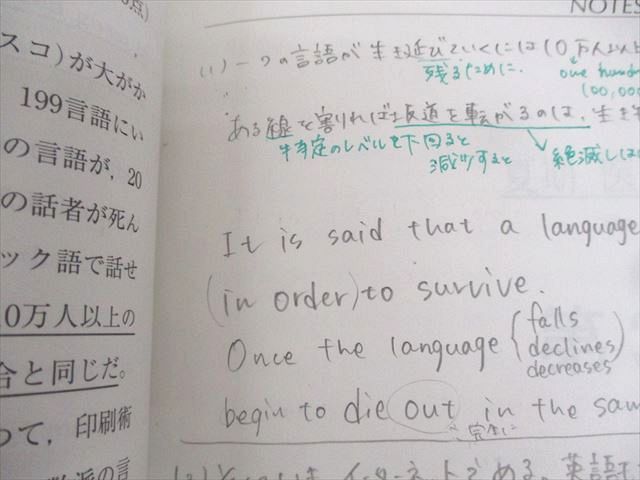 点)
スコ)が大がか
199言語にい
の言語が，20
の話者が死ん
ック語で話せ
0万人以上の
合と同じだ。
って，印刷術
派の言
NOTES
(1) 一つの言語が生き延びていくには10万人以上
残るために.
one hund
100,00
ある線を割れば坂道を転がるのは、生き
特定のレベルを下回ると
減少すると
絶滅しは
It is said that a language
(in order) to survive.
Once the language { falls
declines
decreases
begin to die out in the sam
完全に
インターネットである、英語